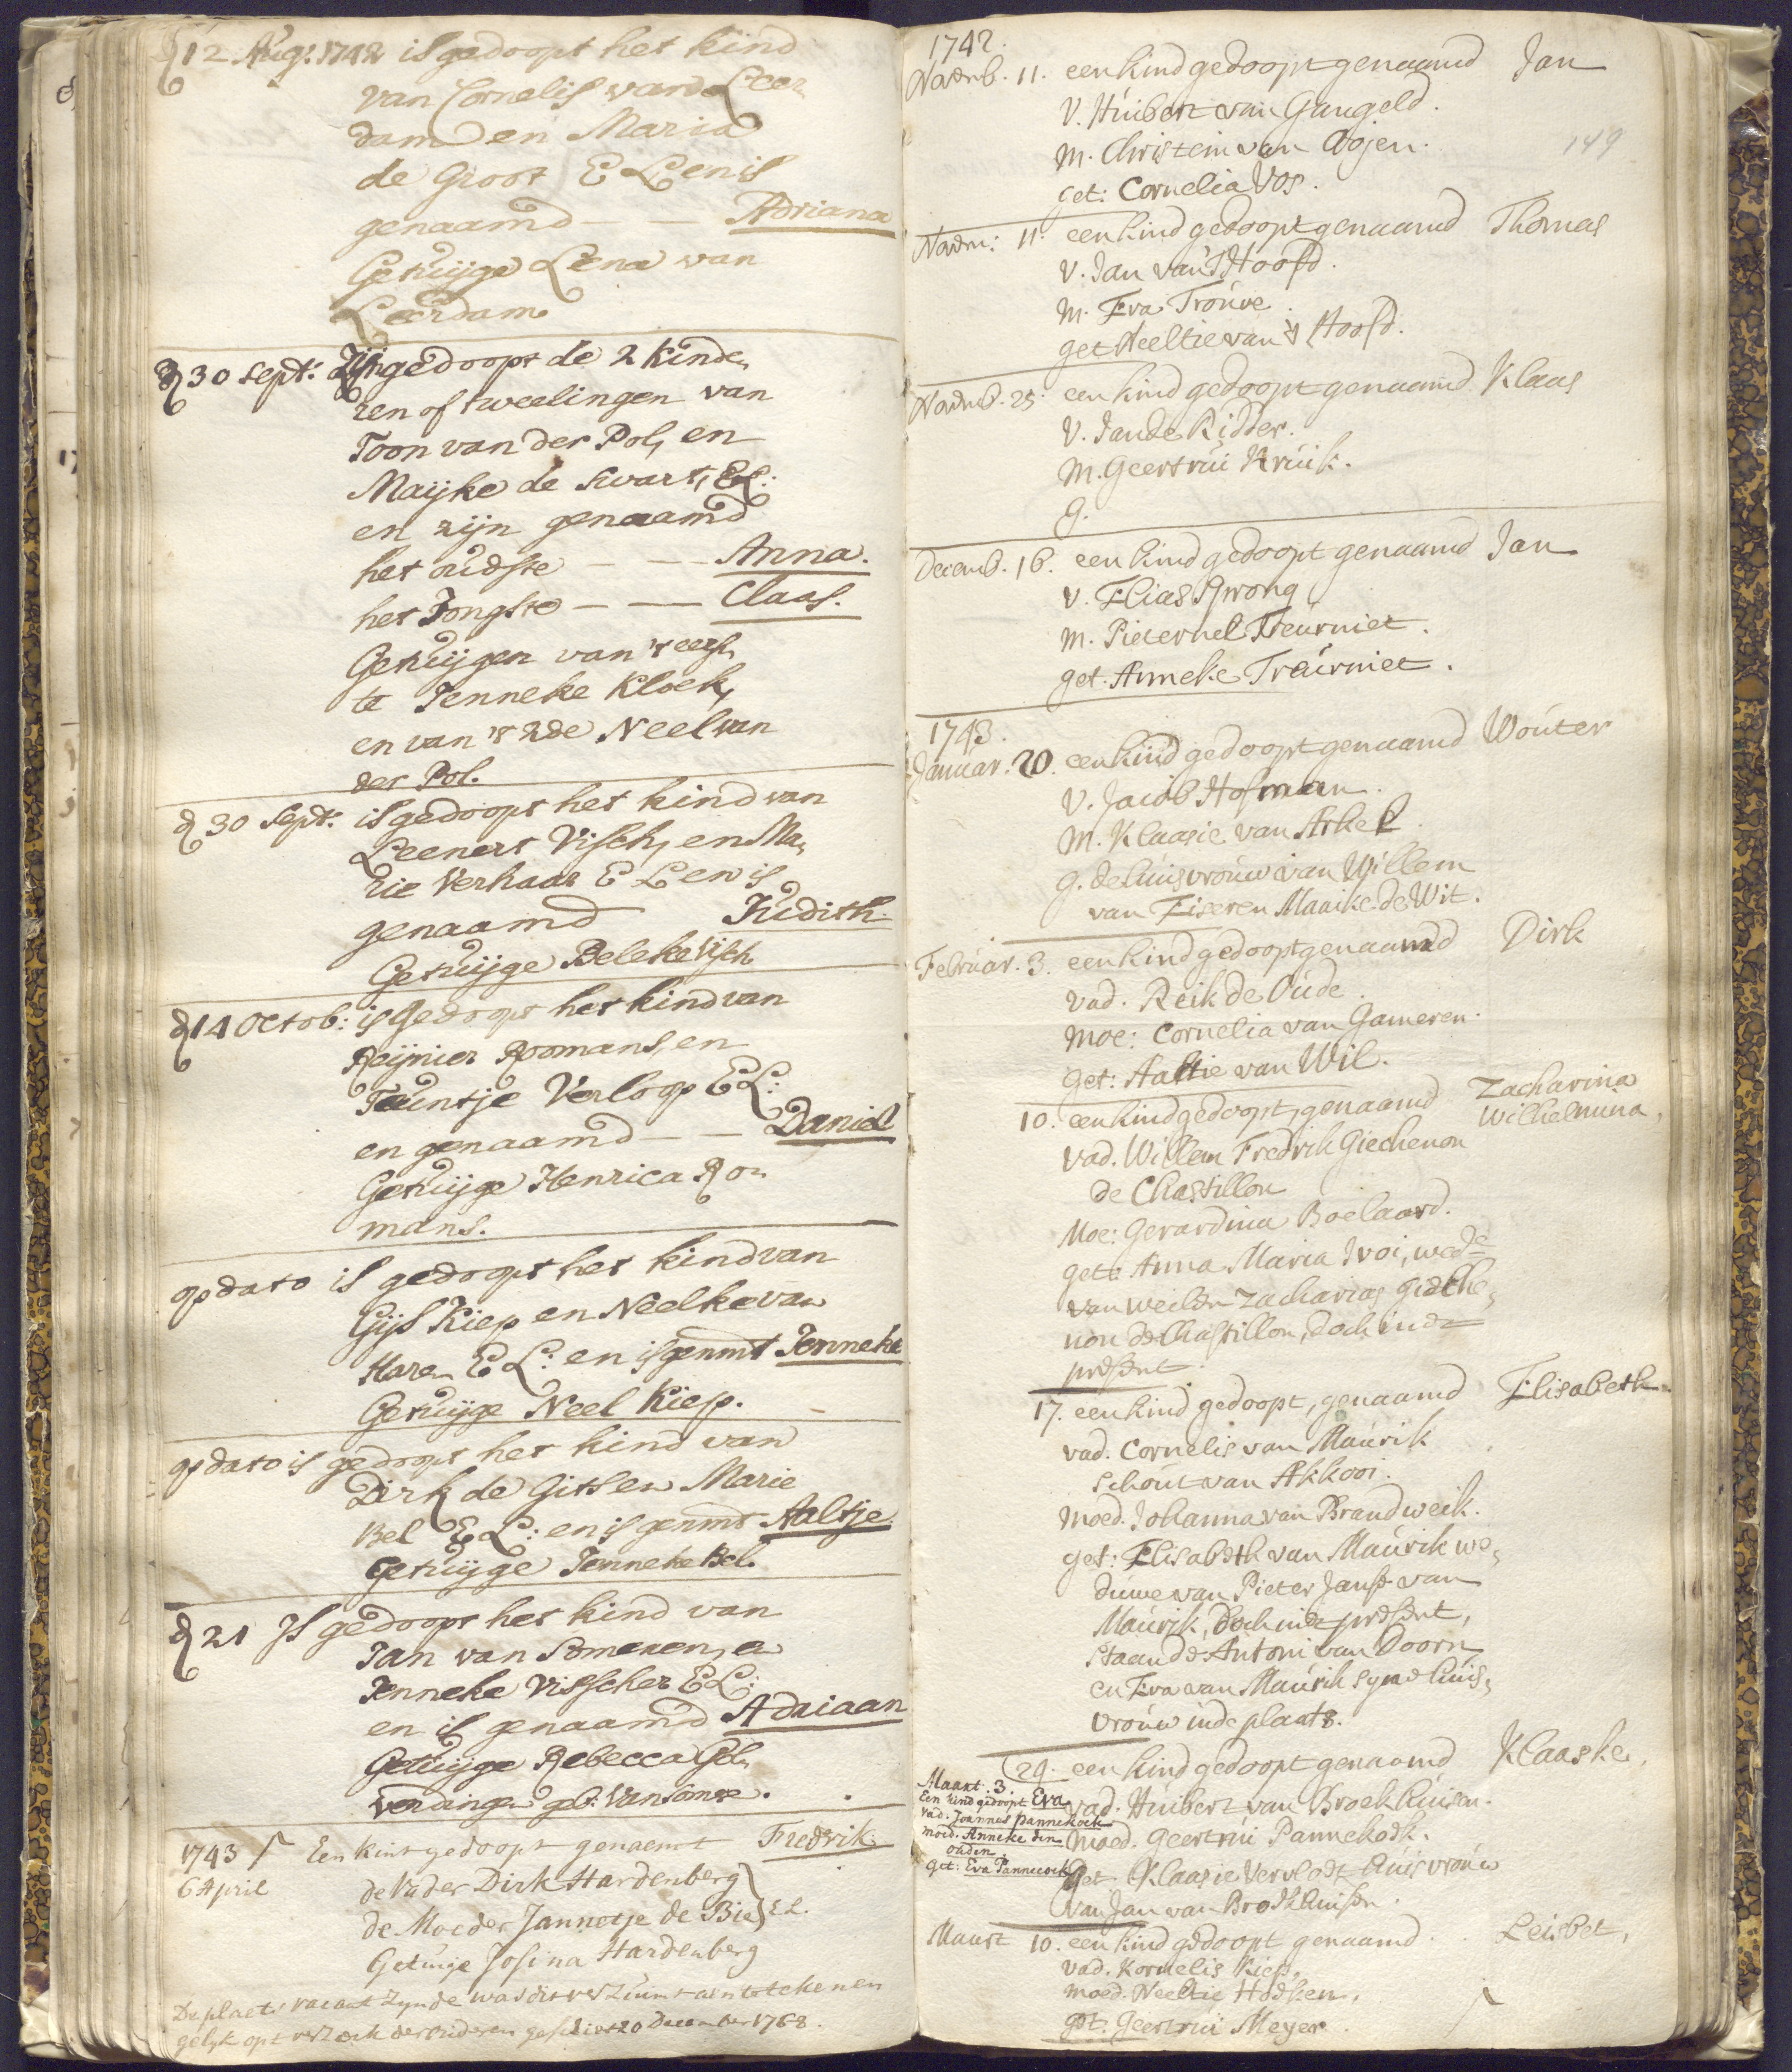 d 12 Aug: 1742 is gedoopt het kind
van Cornelis van Leer-
dam en Maria
de Groot E L en is
genaamd — — Adriana
Getuijge Lena van
Leerdam
d 30 sept: Zijn gedoopt de 2 kinde,
ren of tweelingen van
Toon van der Pol, en
Maijke de Swart, E L:
en zijn genaamd
het oudste — — Anna.
het Jongste — — Claas.
Getuijgen van 't eers,
te Jenneke Kloek,
en van 't 2de Neel van
der Pol.
d 30 Sept: is gedoopt het kind van
Leenert Visch, en Ma,
rie Verhaar E L en is
genaamd Judith
Getuijge Beleke Visch
d 14 Octob: is Gedoopt het kind van
Reijnier Roomans, en
Teuntje Verloop E L:
en genaamd — — Daniel
Getuijge Henrica Ro-
mans.
op dato is gedoopt het kind van
Gijs Kiep en Neelke van
Haren E L: en is genmt Jenneke
Getuijge Neel Kiep.
op dato is gedoopt het kind van
Dirk de Gits en Marie
Bel E L: en is genmt Aaltje
Getuijge Jenneke Bel.
d 21 Is gedoopt het kind van
Jan van Someren, en
Jenneke Visscher E L:
en is genaamd Adriaan
Getuijge Rebecca
geb: van Someren.
1743 Een kint gedoopt genaemt Fredrik
6 April de Vader Dirk Hardenberg
de Moeder Jannetje de Bie } E L.
Getuige Josina Hardenberg
De plaets vacant Zynde was dit verzuimt aen te tekenen
gelyk opt verzoek der ouderen geschiet 20 December 1768.
1742.
149
Novemb. 11. een kind gedoopt genaamd Jan
V. Huibert van Gangeld.
M. Christein van Ooijen.
get: Cornelia Vos.
Novem: 11. een kind gedoopt genaamd Thomas
V. Jan van 't Hoofd.
M. Eva Trouve.
get Neeltie van 't Hoofd.
Novemb. 25. een kind gedoopt genaamd Klaas
V. Jan de Ridder.
M. Geertrui Kruik.
g.
Decemb. 16. een kind gedoopt genaamd Jan
V. Elias Sprong
M. Pieternel Treurniet.
get. Anneke Treurniet.
1743.
Januar. 20. een kind gedoopt genaamd Wouter
V. Jacob Hofman.
M. Klaasie van Arkel.
g. de huisvrouw van Willem
van Eiseren Maaike de Wit.
Februar. 3. een kind gedoopt genaamd Dirk
vad. Reik de Oude.
Moe: Cornelia van Gameren.
get: Aaltie van Wil.
10. een kind gedoopt, genaamd Zacharina
Wilhelmina,
vad. Willem Fredrik Giechenon
de Chastillon
Moe: Gerardina Boelaard.
get: Anna Maria Ivoi, wede
van weilen Zacharias Gieche,
non de Chastillon, doch niet
present.
17. een kind gedoopt, genaamd Elisabeth.
vad. Cornelis van Maurik
Schout van Akkooi.
moed. Johanna van Brandweik.
get: Elisabeth van Maurik we,
duwe van Pieter Jansz van
Maurik, doch niet present,
staande Antoni van Doorn
en Eva van Maurik syne huis,
vrouw in de plaats.
24. een kind gedoopt genaamd Klaaske,
vad. Huibert van Broekhuisen.
moed. Geertrui Pannekoek.
Get. Klaasie Vervloet huisvrouw
van Jan van Broekhuisen.
Maart. 3.
Een kind gedoopt Eva
vad. Joannes Pannekoek
moed. Anneke den
ouden.
get: Eva Pannecoek
Maart 10. een kind gedoopt genaamd. Leisbet,
vad. Kornelis Kiep.
moed. Neeltie Hoeken.
get. Geertrui Meyer.